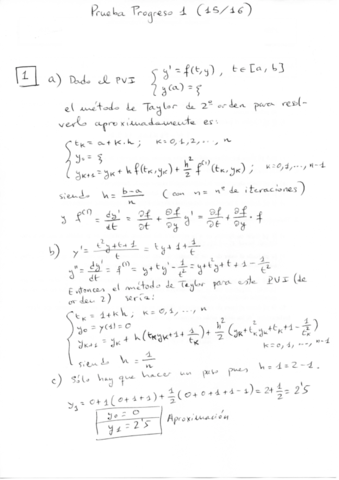 Prueba Progreso 1 (15/16)
1 a) Dado el PVI { y' = f(t,y), t∈[a,b]
y(a) = ξ
el método de Taylor de 2º orden para resol-
verlo aproximadamente es:
{ t_K = a + K·h ; K=0,1,2,..., n
y_0 = ξ
y_{K+1} = y_K + h f(t_K,y_K) + h²/2 f^(1)(t_K,y_K) ; K=0,1,...,n-1
siendo h = (b-a)/n (con n = nº de iteraciones)
y f^(1) = dy'/dt = ∂f/∂t + ∂f/∂y y' = ∂f/∂t + ∂f/∂y · f
b) y' = (t²y+t+1)/t = ty+1+1/t
y'' = dy'/dt = f^(1) = y+ty'-1/t² = y+t²y+t+1-1/t²
Entonces el método de Taylor para este PVI (de
orden 2) sería:
{ t_K = 1+Kh ; K=0,1,...,n
y_0 = y(1) = 0
y_{K+1} = y_K + h(t_K y_K+1+1/t_K) + h²/2 (y_K+t_K²y_K+t_K+1-1/t_K²)
K=0,1,...,n-1
siendo h = 1/n
c) Sólo hay que hacer un paso pues h=1=2-1.
y_1 = 0+1(0+1+1)+1/2(0+0+1+1-1) = 2+1/2 = 2'5
y_0 = 0
y_1 = 2'5 Aproximación